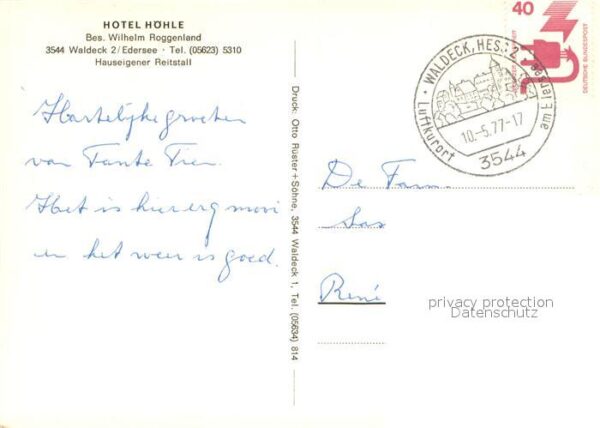 HOTEL HÖHLE
Bes. Wilhelm Roggenland
3544 Waldeck 2/Edersee · Tel. (05623) 5310
Hauseigener Reitstall
Hartelijke groeten
van Tante Tien.
Het is hier erg mooi
en het weer is goed.
Druck: Otto Rüster+Söhne, 3544 Waldeck 1, Tel. (05634) 814
40
DEUTSCHE BUNDESPOST
· WALDECK, HES. 2 ·
am Edersee
Luftkurort
10.-5.77-17
3544
De Fam.
Sas
René
privacy protection
Datenschutz